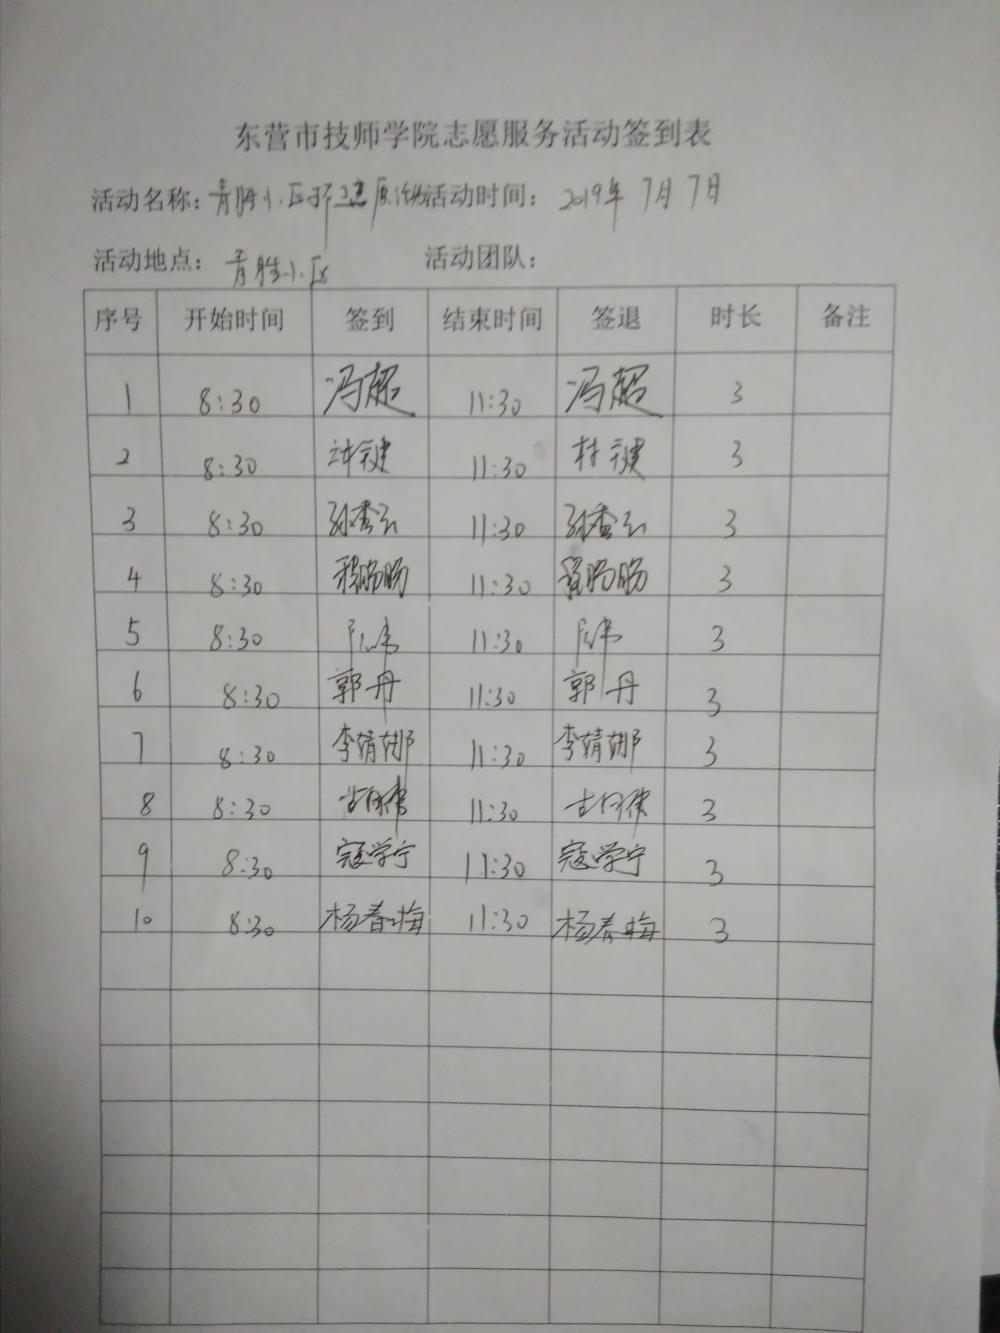 东营市技师学院志愿服务活动签到表
活动名称：青胜小区 活动时间：2019年7月7日
活动地点：青胜小区 活动团队：
序号 开始时间 签到 结束时间 签退 时长 备注
1 8:30 冯超 11:30 冯超 3
2 8:30 11:30 3
3 8:30 孙秀云 11:30 孙秀云 3
4 8:30 程肠肠 11:30 程肠肠 3
5 8:30 11:30 3
6 8:30 郭丹 11:30 郭丹 3
7 8:30 李婧娜 11:30 李婧娜 3
8 8:30 11:30 3
9 8:30 寇学宁 11:30 寇学宁 3
10 8:30 杨春梅 11:30 杨春梅 3